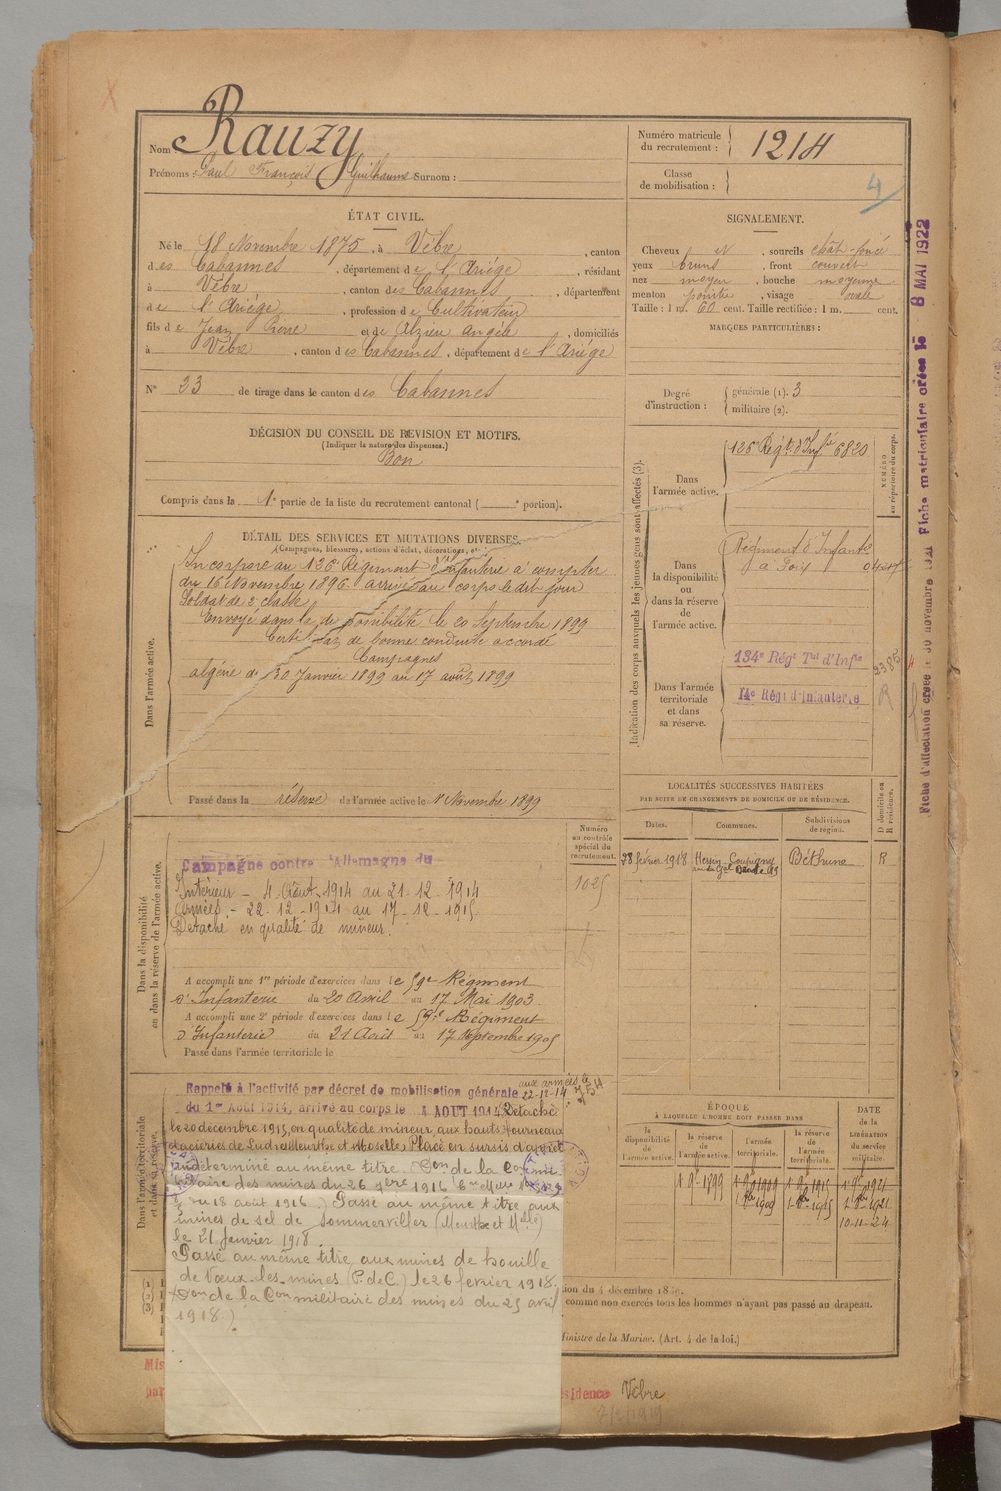 Nom : Rauzy
Prénoms : Paul François Guilhaume Surnom :
Numéro matricule du recrutement : 1214
Classe de mobilisation :
4
ÉTAT CIVIL.
Né le 18 Novembre 1875, à Vèbre, canton
des Cabannes, département de l'Ariège, résidant
à Vèbre, canton des Cabannes, département
de l'Ariège, profession de Cultivateur
fils de Jean Pierre et de Alzieu Angèle, domiciliés
à Vèbre, canton des Cabannes, département de l'Ariège
N° 23 de tirage dans le canton des Cabannes
SIGNALEMENT.
Cheveux et, sourcils chât-foncé
yeux bruns, front couvert
nez moyen, bouche moyenne
menton pointu, visage ovale
Taille : 1 m. 60 cent. Taille rectifiée : 1 m. cent.
MARQUES PARTICULIÈRES :
Degré d'instruction : générale (1). 3
militaire (2).
DÉCISION DU CONSEIL DE REVISION ET MOTIFS.
(Indiquer la nature des dispenses.)
Bon
Compris dans la 1e partie de la liste du recrutement cantonal ( e portion).
DÉTAIL DES SERVICES ET MUTATIONS DIVERSES.
(Campagnes, blessures, actions d'éclat, décorations, etc.
Dans l'armée active.
Incorporé au 126e Régiment d'Infanterie à compter
du 16 Novembre 1896 arrivé au corps le dit jour
Soldat de 2e classe
Envoyé dans la disponibilité le 20 Septembre 1899
Certificat de bonne conduite accordé
Campagnes
Algérie du 30 Janvier 1899 au 17 août 1899
Passé dans la réserve de l'armée active le 1er Novembre 1899
Indication des corps auxquels les jeunes gens sont affectés (3).
NUMÉRO au répertoire du corps.
Dans l'armée active.
126e Régt d'Infie 6820
Dans la disponibilité ou dans la réserve de l'armée active.
Régiment d'Infantie
à Foix
Dans l'armée territoriale et dans sa réserve.
134e Régt Tal d'Infie
14e Régt d'Infanterie
R
Fiche d'affectation créée le 30 novembre Fiche matriculaire créée le 8 MAI 1922
Dans la disponibilité ou dans la réserve de l'armée active.
Numéro au contrôle spécial du recrutement.
1025
Campagne contre l'Allemagne du
Intérieur - 4 Août 1914 au 21-12-1914
Armées - 22-12-1914 au 17-12-1915
Détaché en qualité de mineur.
A accompli une 1re période d'exercices dans le 59e Régiment
d'Infanterie du 20 Avril au 17 Mai 1903.
A accompli une 2e période d'exercices dans le 59e Régiment
d'Infanterie du 21 Août au 17 Septembre 1905
Passé dans l'armée territoriale le
LOCALITÉS SUCCESSIVES HABITÉES
PAR SUITE DE CHANGEMENTS DE DOMICILE OU DE RÉSIDENCE.
Dates. Communes. Subdivisions de région. D domicile ou R résidence.
28 février 1918 Hersin-Coupigny Béthune R
Dans l'armée territoriale et dans sa réserve.
Rappelé à l'activité par décret de mobilisation générale aux armées le
22-12-14
du 1er Août 1914, arrivé au corps le 4 AOUT 1914 Détaché
le 20 décembre 1915, en qualité de mineur, aux hauts-fourneaux
et aciéries de Ludres Meurthe et Moselle. Placé en sursis d'appel
indéterminé au même titre. Don de la Con mili
taire des mines du 26
du 18 août 1916.) Passé au même titre aux
mines de sel de Sommerviller (Meurthe et Mselle)
le 21 janvier 1918.
Passé au même titre aux mines de houille
de Vœux-les-mines (P. de C.) le 26 février 1918.
(Don de la Con militaire des mines du 25 avril
1918.)
ÉPOQUE
À LAQUELLE L'HOMME DOIT PASSER DANS
la disponibilité de l'armée active. la réserve de l'armée active. l'armée territoriale. la réserve de l'armée territoriale. DATE de la LIBÉRATION du service militaire.
1er 9bre 1899
1er 9bre 1909
10-11-24
(1)
(2) du 4 décembre
(3) comme non exercés tous les hommes n'ayant pas passé au drapeau.
Ministre de la Marine. (Art. 4 de la loi.)
Mis
par
résidence Vèbre